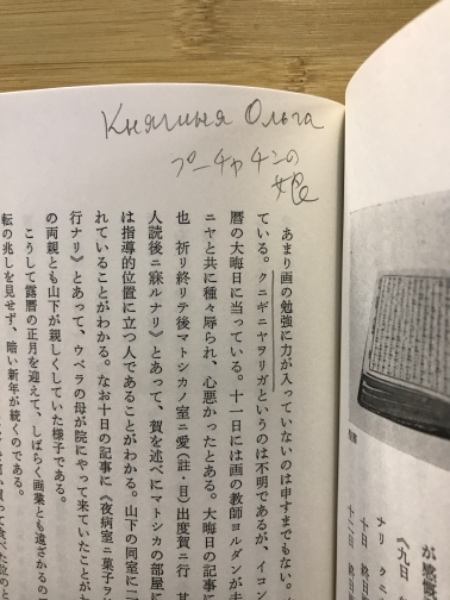 Княгиня Ольга
プーチャチンの
娘
あまり画の勉強に力が入っていないのは申すまでもない。
ている。クニギニヤヲリガというのは不明であるが、イコン
暦の大晦日に当っている。十一日には画の教師ヨルダンが
ニヤと共に種々辱られ、心悪かったとある。大晦日の記事に
也 祈り終リテ後マトシカノ室ニ愛(註・目)出度賀ニ行 其
人読後ニ寐ルナリ》とあって、賀を述べにマトシカの部屋に
は指導的位置に立つ人であることがわかる。山下の同室に二
れていることがわかる。なお十日の記事に《夜病室ニ菓子ヲ
行ナリ》とあって、ウベラの母が院にやって来ていたことが
の両親とも山下が親しくしていた様子である。
こうして露暦の正月を迎えて、しばらく画業とも遠ざかるの
転の兆しを見せず、暗い新年が続くのである。
が感慨
《九日
ナリ クニ
十日 終日
十二日 終日